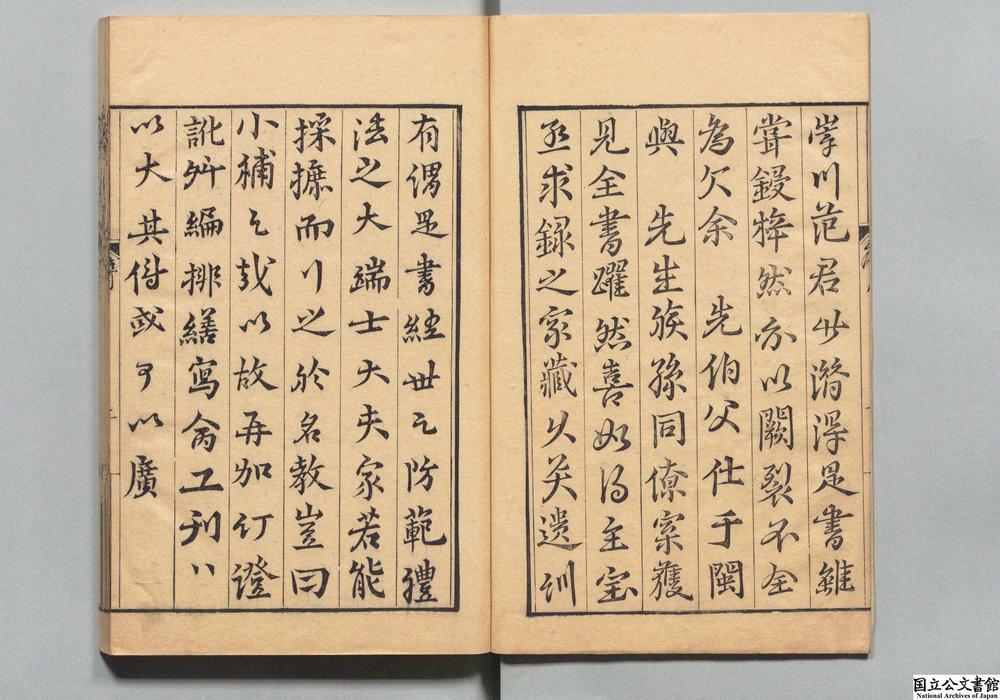 川范君少潛淂是書雖
嘗鋟梓然亦以闕裂不全
為欠余　先伯父仕于閩
與　先生族孫同僚寀獲
見全書躍然喜如得至宝
亟求録之家藏久矣遺訓
有是書経世之防範禮
法之大端士大夫家若能
採摭而行之於名教豈曰
小補之哉以故再加訂證
訛舛編排繕寫命工刊行
以大其傳或可以廣
国立公文書館
National Archives of Japan